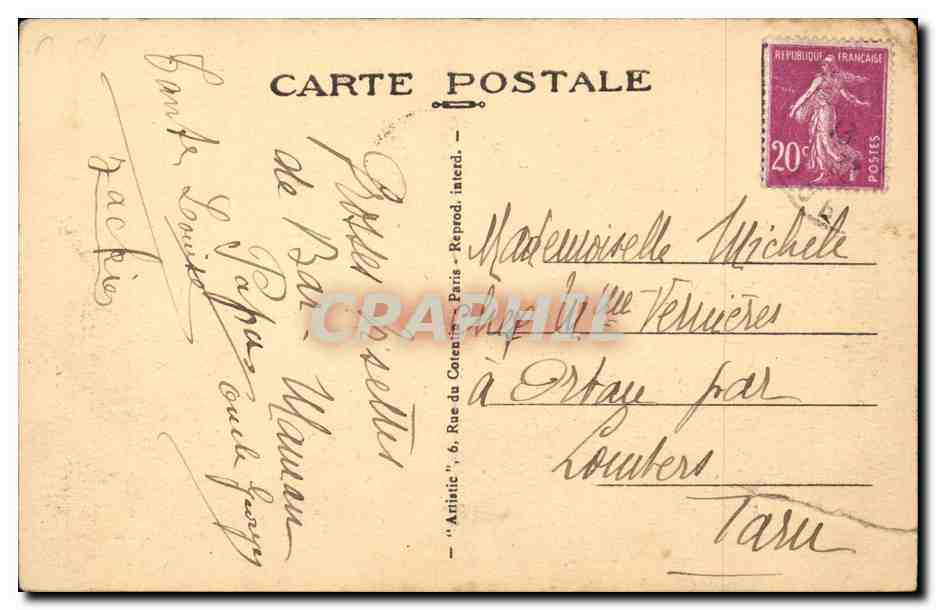 CARTE POSTALE
REPUBLIQUE FRANÇAISE
20c
POSTES
Grosses bisettes
de Bar. Maman
Papa oncle Georges
Tante Louise
Jackie
"Artistic", 6, Rue du Cotentin - Paris - Reprod. interd.
Mademoiselle Michele
chez Mme Vernières
à Orban par
Lombers
Tarn
CRAPHIL